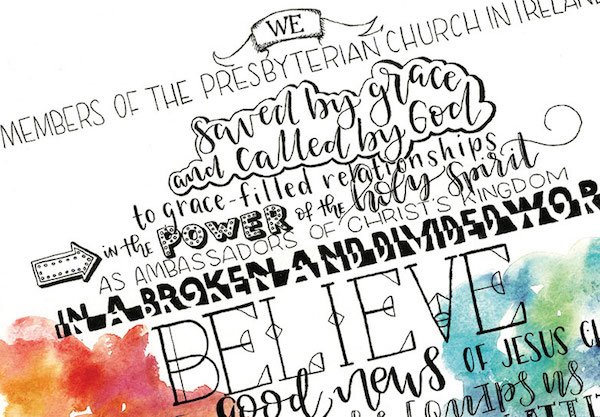 WE
MEMBERS OF THE PRESBYTERIAN CHURCH IN IRELAND
Saved by grace
and called by God
to grace-filled relationships
in the POWER of the holy Spirit
AS AMBASSADORS OF CHRIST'S KINGDOM
IN A BROKEN AND DIVIDED WOR
BELIEVE
good news OF JESUS C
equips us